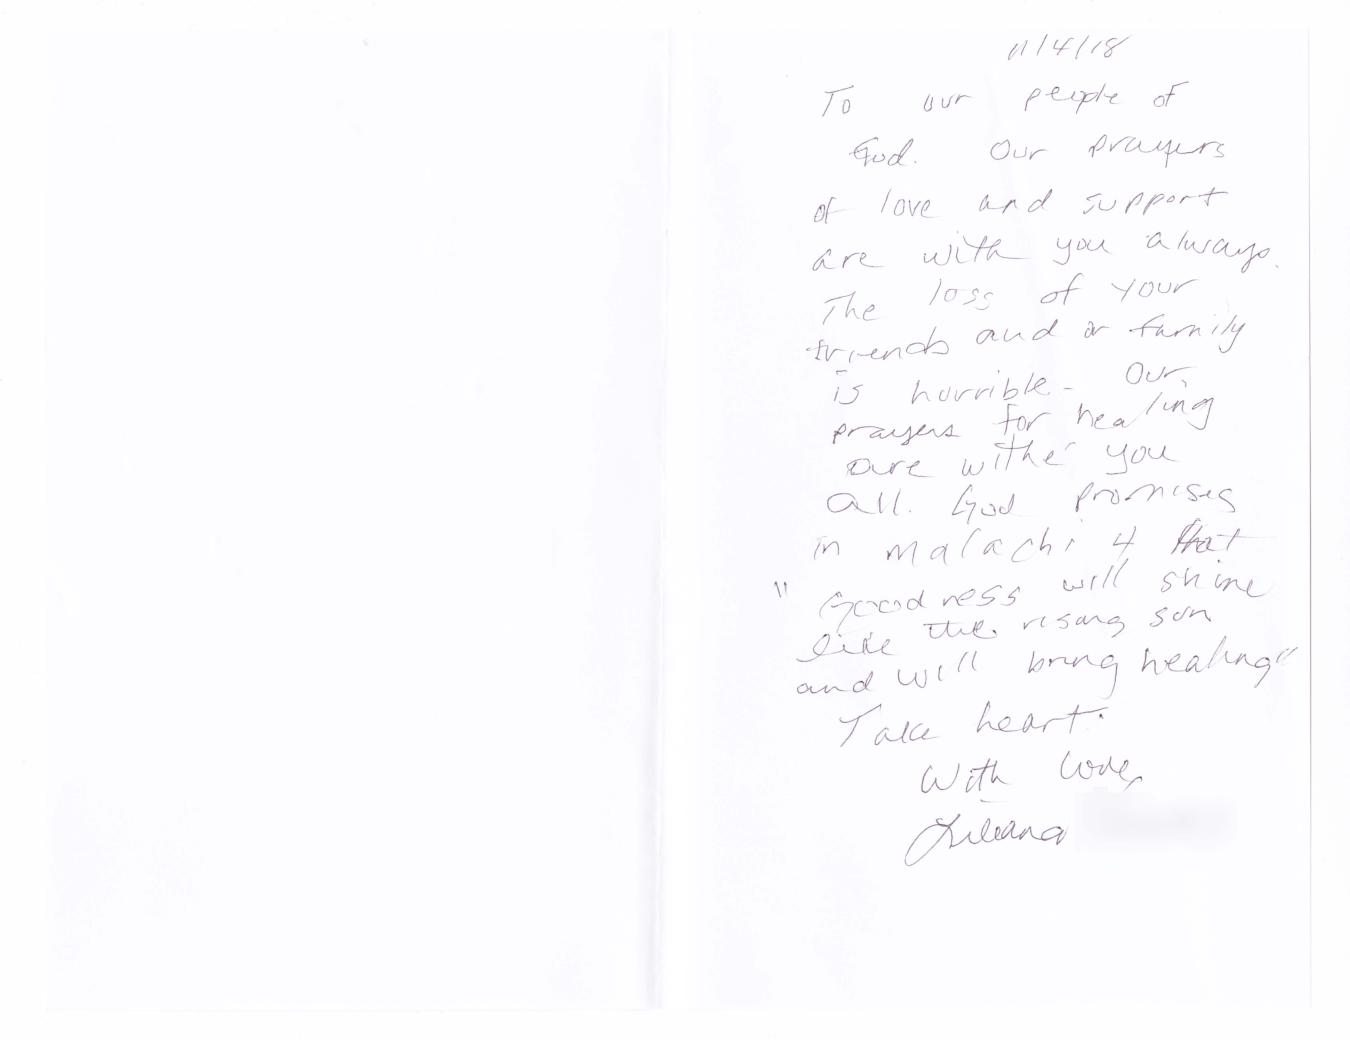 11/4/18
To our people of
God. Our prayers
of love and support
are with you always.
The loss of your
friends and or family
is horrible - Our
prayers for healing
are withe you
all. God promises
in malachi 4 that
"Goodness will shine
like the rising sun
and will bring healing"
Take heart.
With love,
Liliana